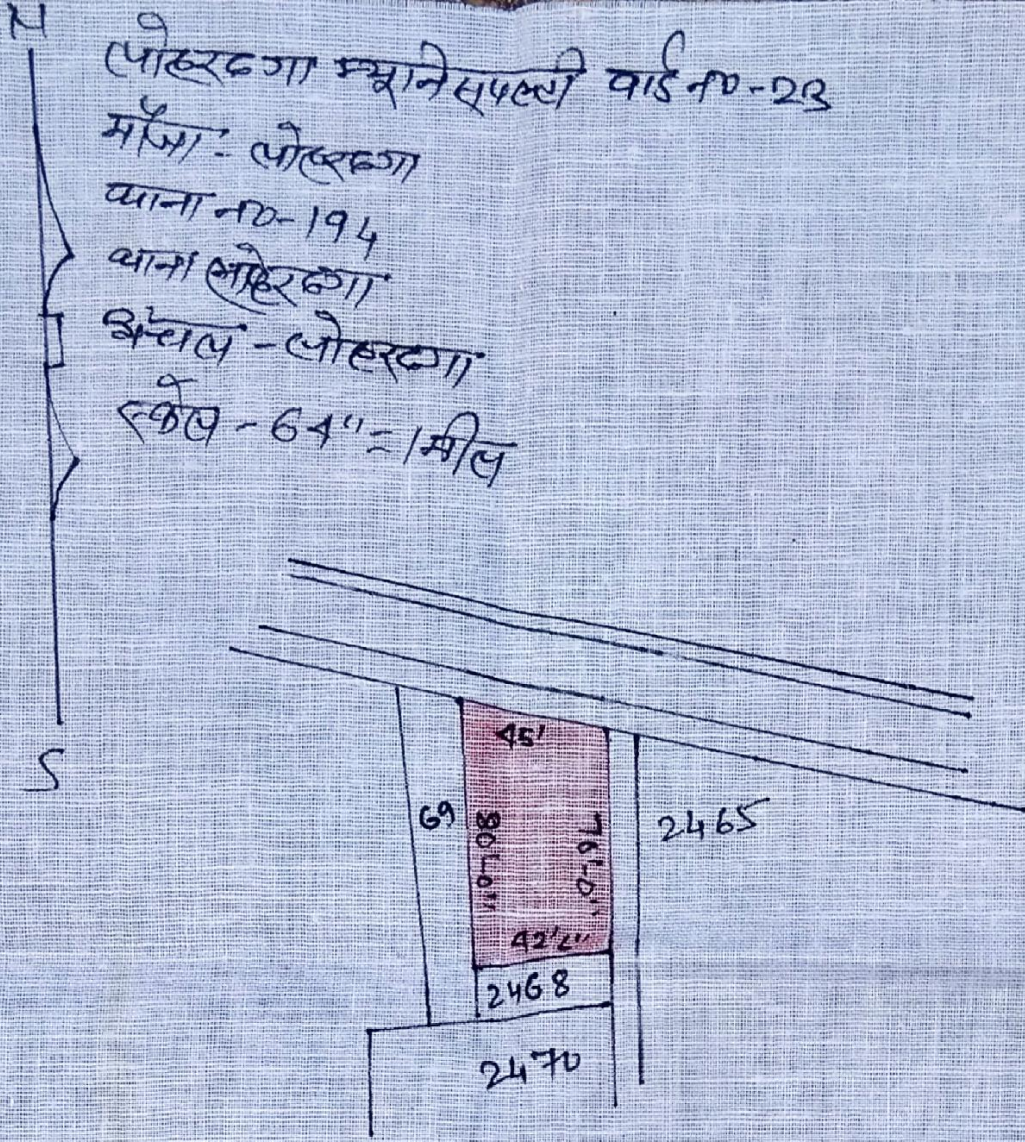 N
लोहरदगा म्यूनिसपल्टी वार्ड नं०-23
मौजा: लोहरदगा
थाना नं०-194
थाना लोहरदगा
अंचल - लोहरदगा
स्केल - 64"=1मील
S
45'
69
80'-0"
76'-0"
2465
42'
2468
2470